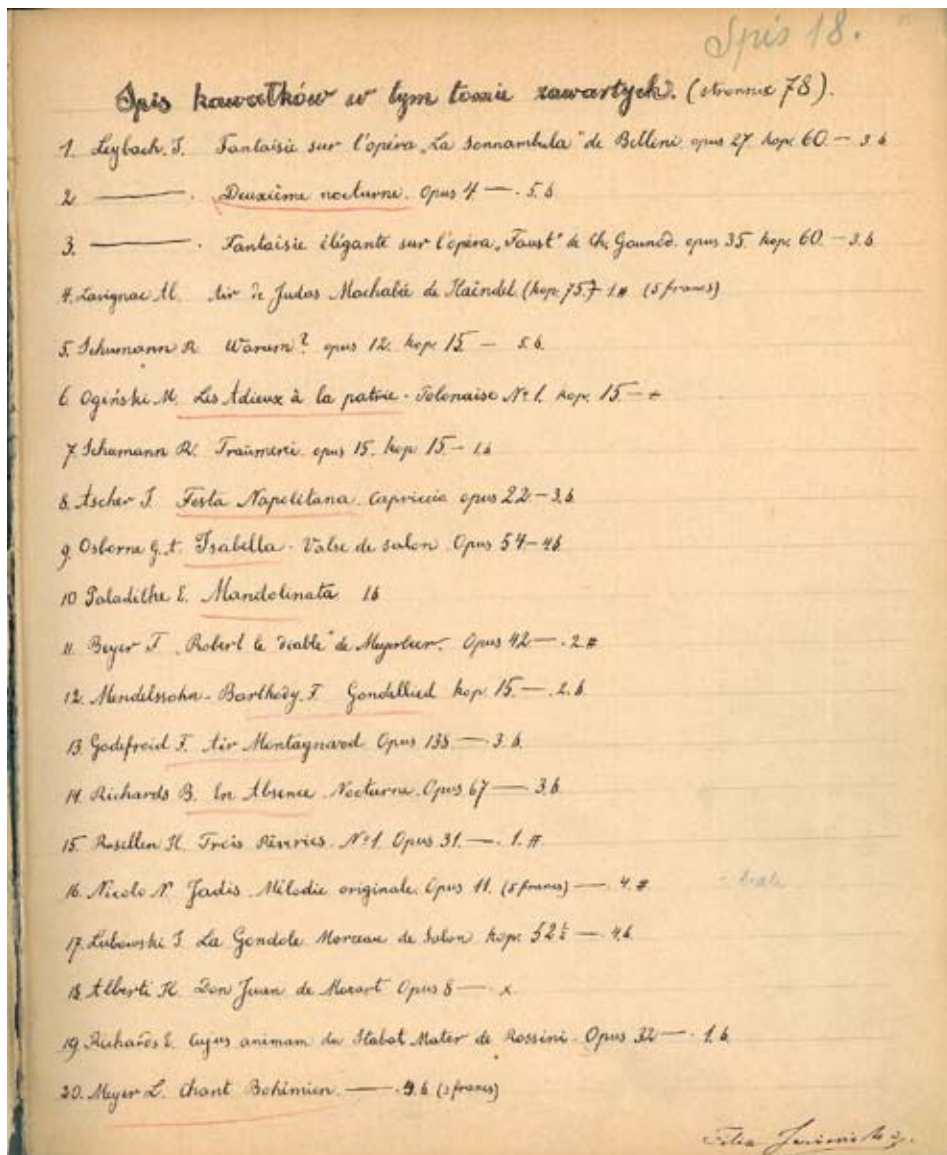 Spis 18.
Spis kawałków w tym tomie zawartych. (stronnic 78).
1. Leybach. J. Fantaisie sur l'opéra „La Sonnambula" de Bellini opus 27 kop. 60 — 3.b
2 ——. Deuxième nocturne. Opus 4 —. 5.b
3. ——. Fantaisie élégante sur l'opéra „Faust" de Ch. Gounod. opus 35. kop. 60. — 3.b.
4. Lavignac Al. Air de Judas Machabée de Haëndel (kop. 75.) 1.# (5 francs)
5. Schumann R. Warum? opus 12. kop. 15. — 5.b.
6. Ogiński M. Les Adieux à la patrie - Polonaise No 1. kop. 15 —
7. Schumann R. Traümerei. opus 15. kop 15 — 1.b
8. Ascher J. Festa Napolitana. Capriccio opus 22 — 3.b.
9. Osborne G. A. Isabella - Valse de salon. Opus 54 — 4b
10 Paladilhe E. Mandolinata 1b
11. Beyer F. „Robert le diable" de Meyerbeer. Opus 42 —. 2.#
12. Mendelssohn - Bartholdy. F. Gondellied kop. 15. —. 2.b.
13. Godefroid F. Air Montagnard Opus 138 —. 3.b.
14. Richards B. En Absence. Nocturne. Opus 67 — 3.b.
15. Rosellen H. Trois Rêveries. No 1. Opus 31. —. 1.#.
16. Nicolo N. Jadis. Mélodie originale. Opus 11. (5 francs) — 4.#
17. Lubowski J. La Gondole Morceau de Salon kop. 52½ — 4.b.
18. Alberti H. Don Juan de Mozart Opus 8 —. x.
19. Richards E. Cujus animam du Stabat Mater de Rossini. Opus 32 —. 1.b.
20. Meyer L. Chant Bohémien. —. b (5 francs)